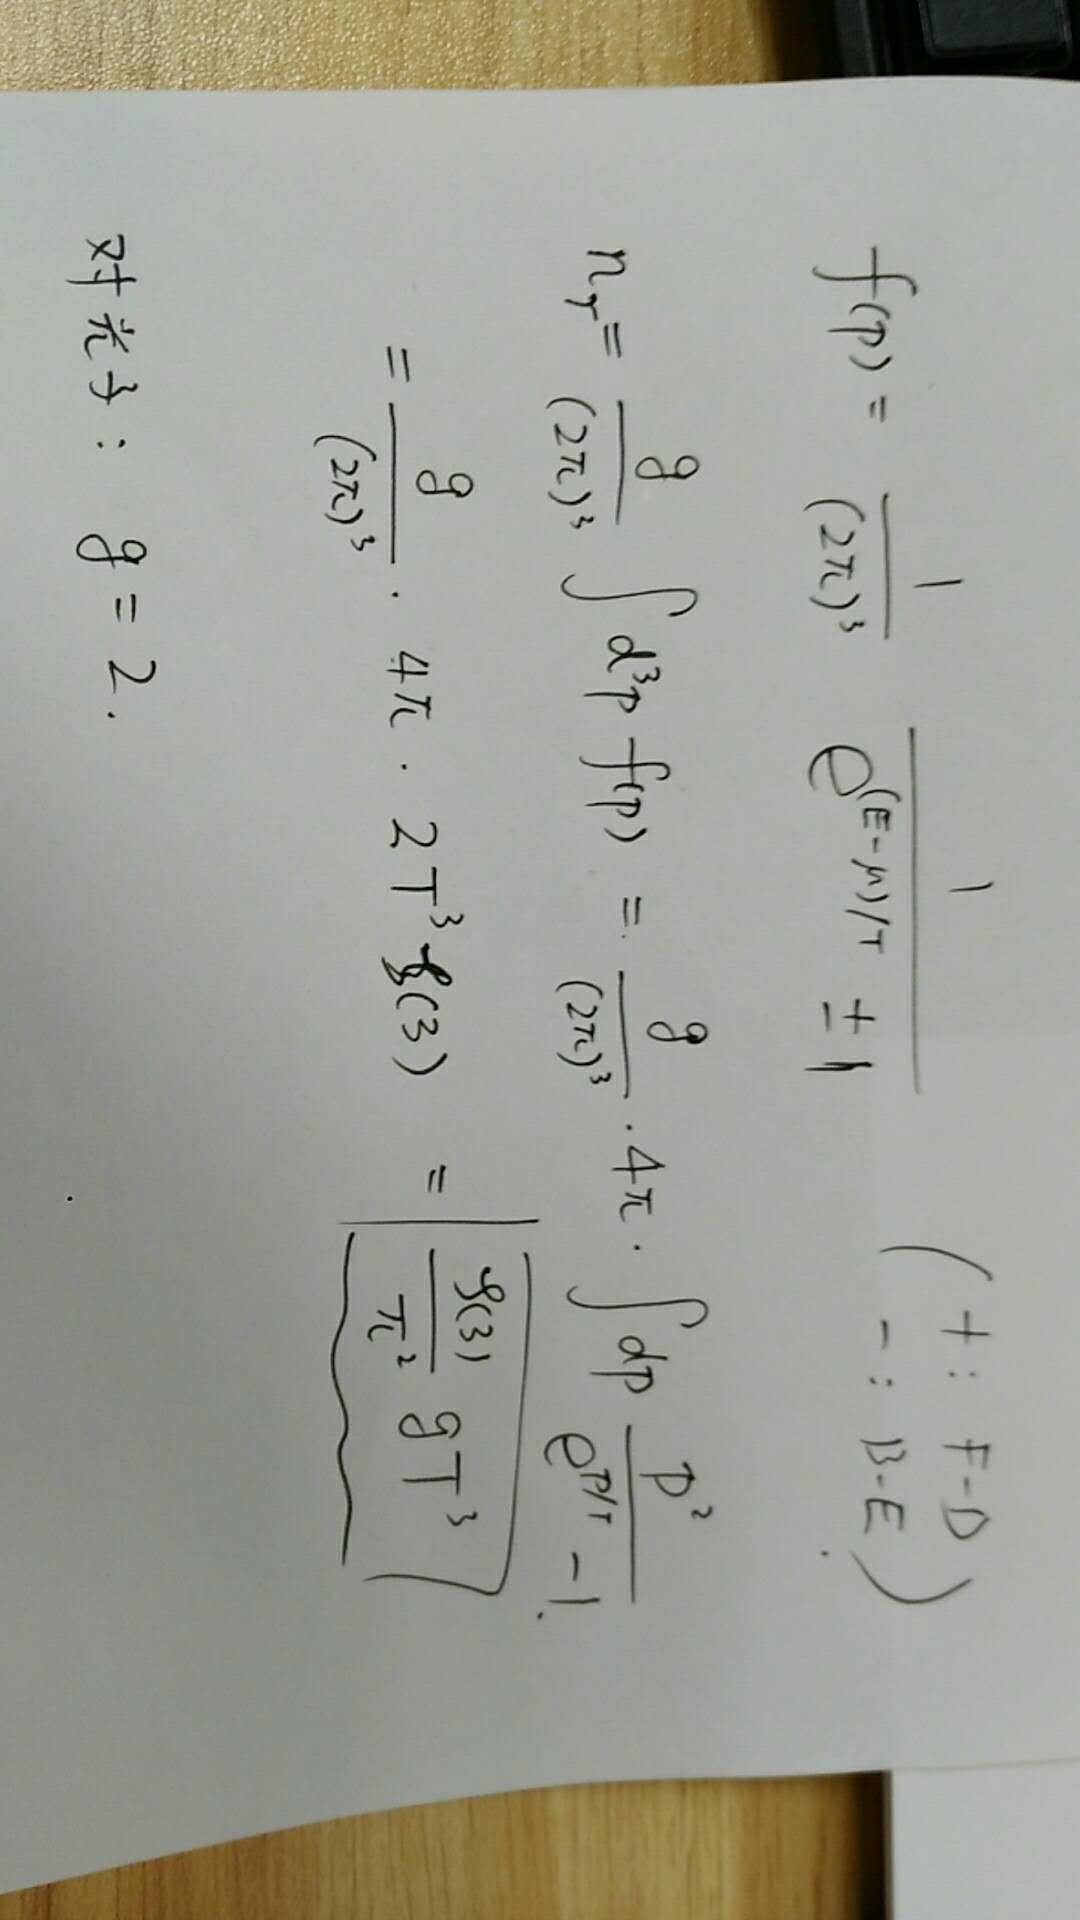 f(p) = 1/(2π)³ 1/(e^((E-μ)/T) ± 1) ( +: F-D
-: B-E )
n_γ = g/(2π)³ ∫ d³p f(p) = g/(2π)³ · 4π · ∫ dp p²/(e^(p/T) - 1).
= g/(2π)³ · 4π · 2T³ζ(3) = ζ(3)/π² gT³
对光子: g = 2.